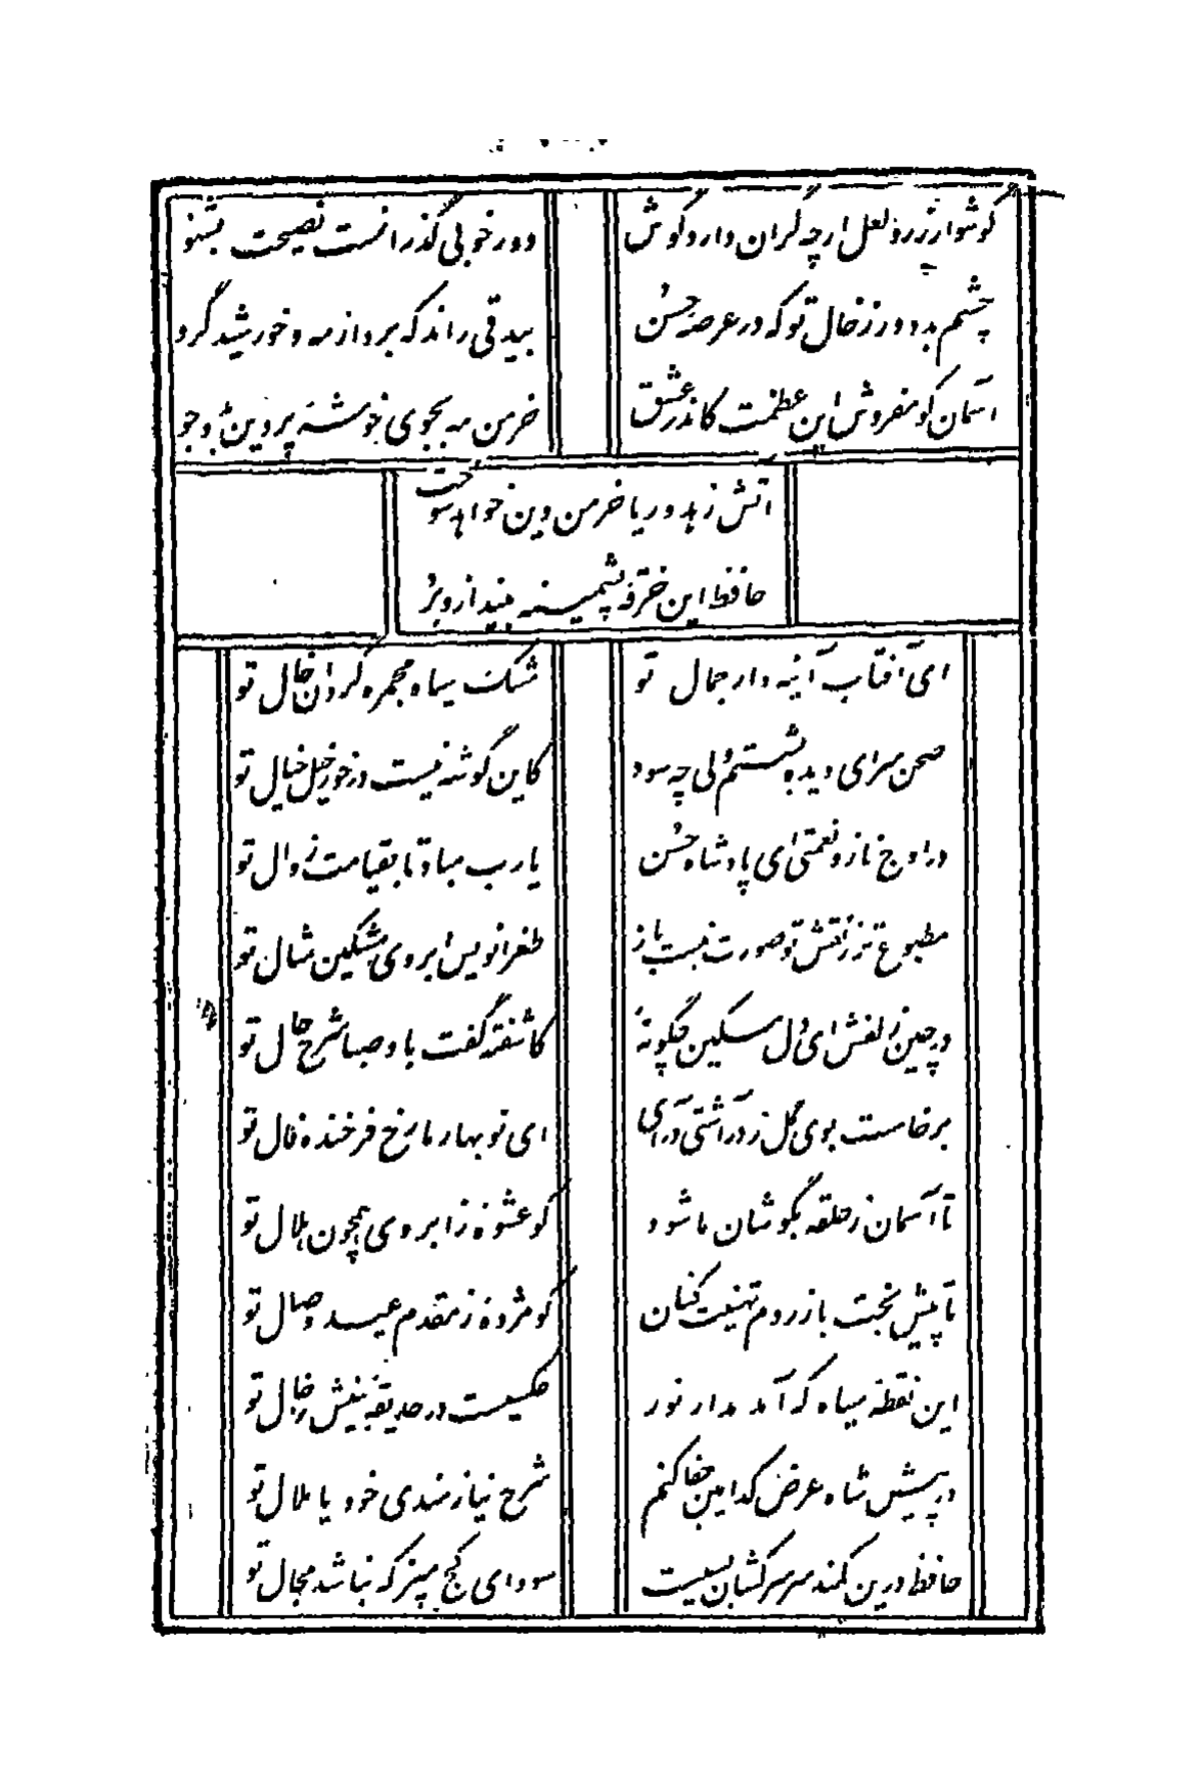 گوشوار زر و لعل ارچه گران دارد گوش
دور خوبی گذرانست نصیحت بشنو
چشم بد دور ز خال تو که در عرصه حسن
بیدقی راند که برد از مه و خورشید گرو
آسمان گو مفروش این عظمت کاندر عشق
خرمن مه بجوی خوشه پروین بدو جو
آتش زهد و ریا خرمن دین خواهد سوخت
حافظ این خرقه پشمینه بینداز و برو
ای آفتاب آینه دار جمال تو
مشک سیاه مجمره گردان خال تو
صحن سرای دیده بشستم ولی چه سود
کاین گوشه نیست در خور خیل خیال تو
در اوج ناز و نعمتی ای پادشاه حسن
یارب مباد تا بقیامت زوال تو
مطبوع تر ز نقش تو صورت نبست باز
طغرانویس ابروی مشکین مثال تو
در چین زلفش ای دل مسکین چگونهٔ
کاشفته گفت باد صبا شرح حال تو
برخاست بوی گل ز در آشتی درآی
ای نوبهار ما رخ فرخنده فال تو
تا آسمان ز حلقه بگوشان ما شود
کو عشوهٔ ز ابروی همچون هلال تو
تا پیش بخت باز روم تهنیت کنان
کو مژدهٔ ز مقدم عید وصال تو
این نقطه سیاه که آمد مدار نور
عکسیست در حدیقه بینش ز خال تو
در پیش شاه عرض کدامین جفا کنم
شرح نیازمندی خود یا ملال تو
حافظ درین کمند سر سرکشان بسیست
سودای کج مپز که نباشد مجال تو